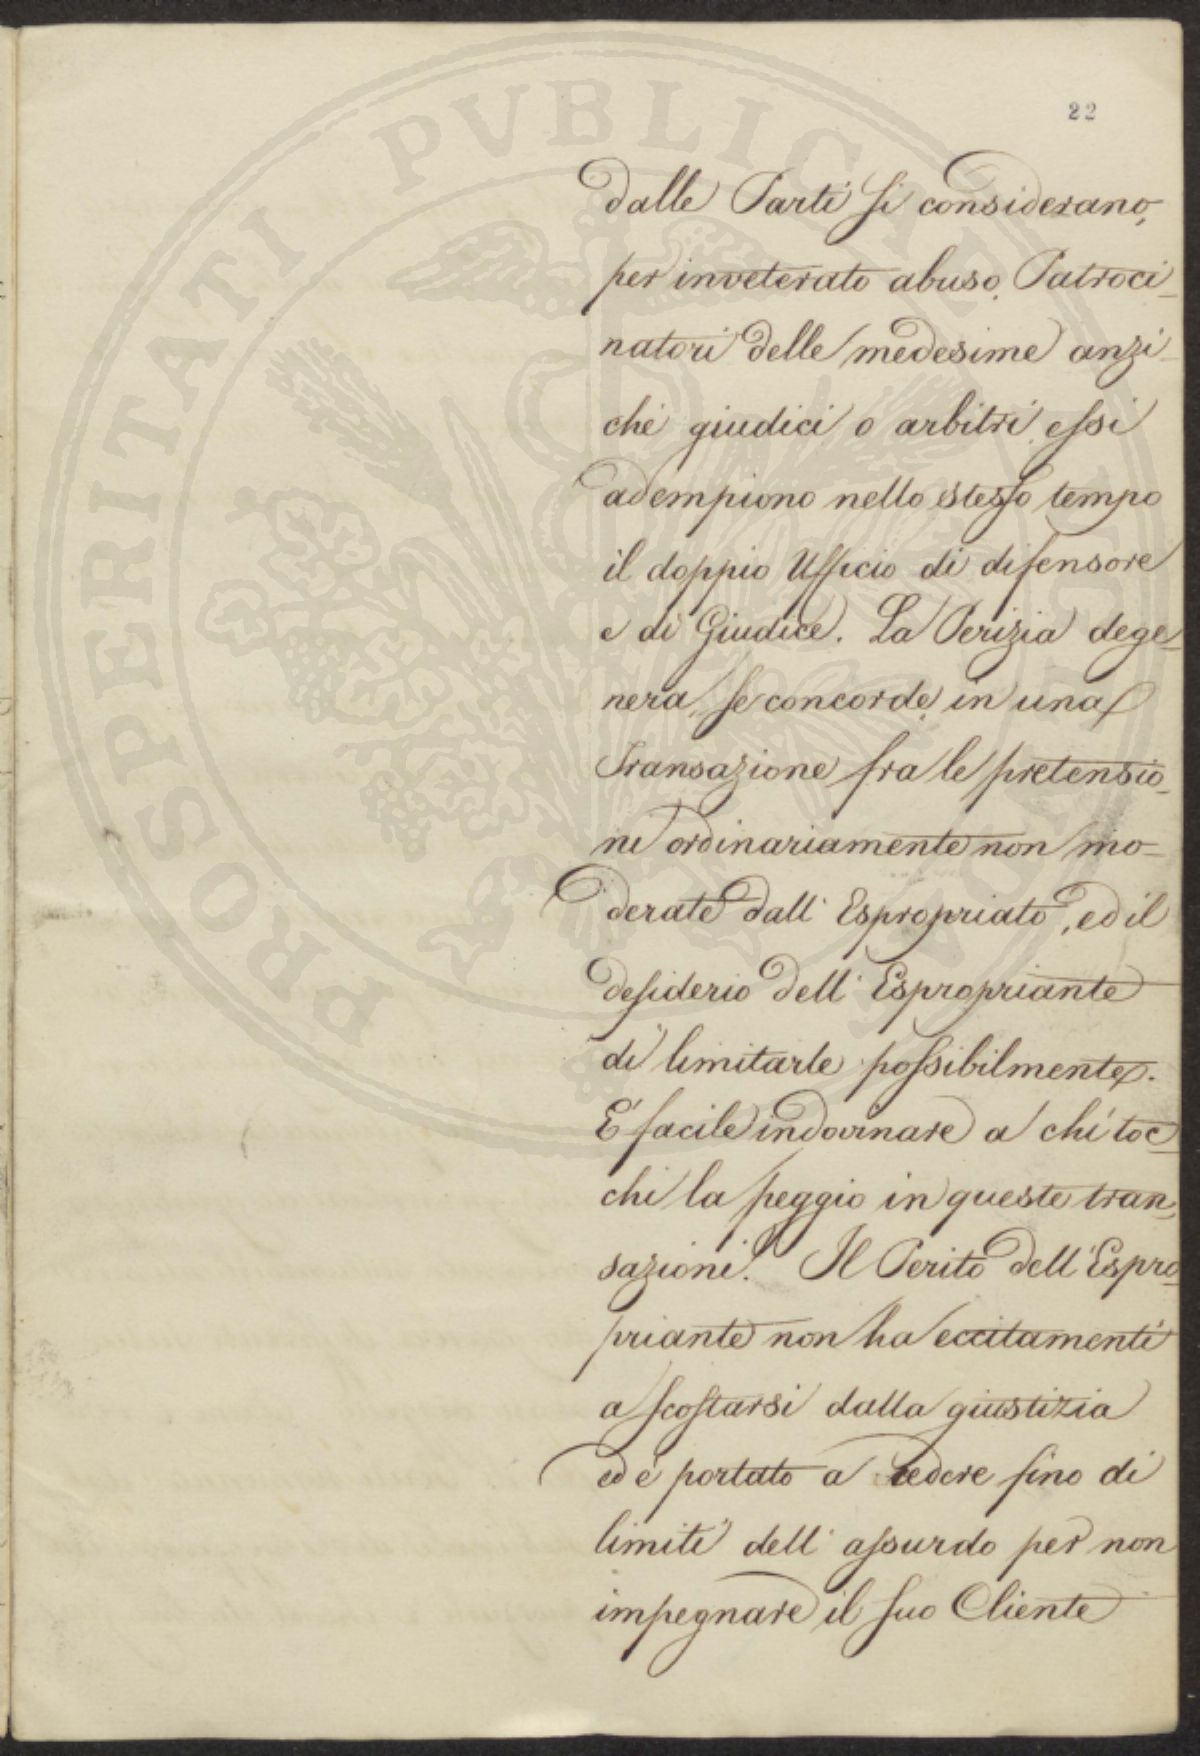 22
dalle Parti si considerano,
per inveterato abuso, Patroci-
natori delle medesime anzi-
chè giudici o arbitri, essi
adempiono nello stesso tempo
il doppio Ufficio di difensore
e di Giudice. La Perizia dege-
nera, se concorde, in una
Transazione fra le pretensio-
ni ordinariamente non mo-
derate dall'Espropriato, ed il
desiderio dell'Espropriante
di limitarle possibilmente.
E' facile indovinare a chi toc-
chi la peggio in queste tran-
sazioni. Il Perito dell'Espro-
priante non ha eccitamenti
a scostarsi dalla giustizia
ed è portato a cedere fino di
limiti dell'assurdo per non
impegnare il suo Cliente
PROSPERITATI PVBLICAE